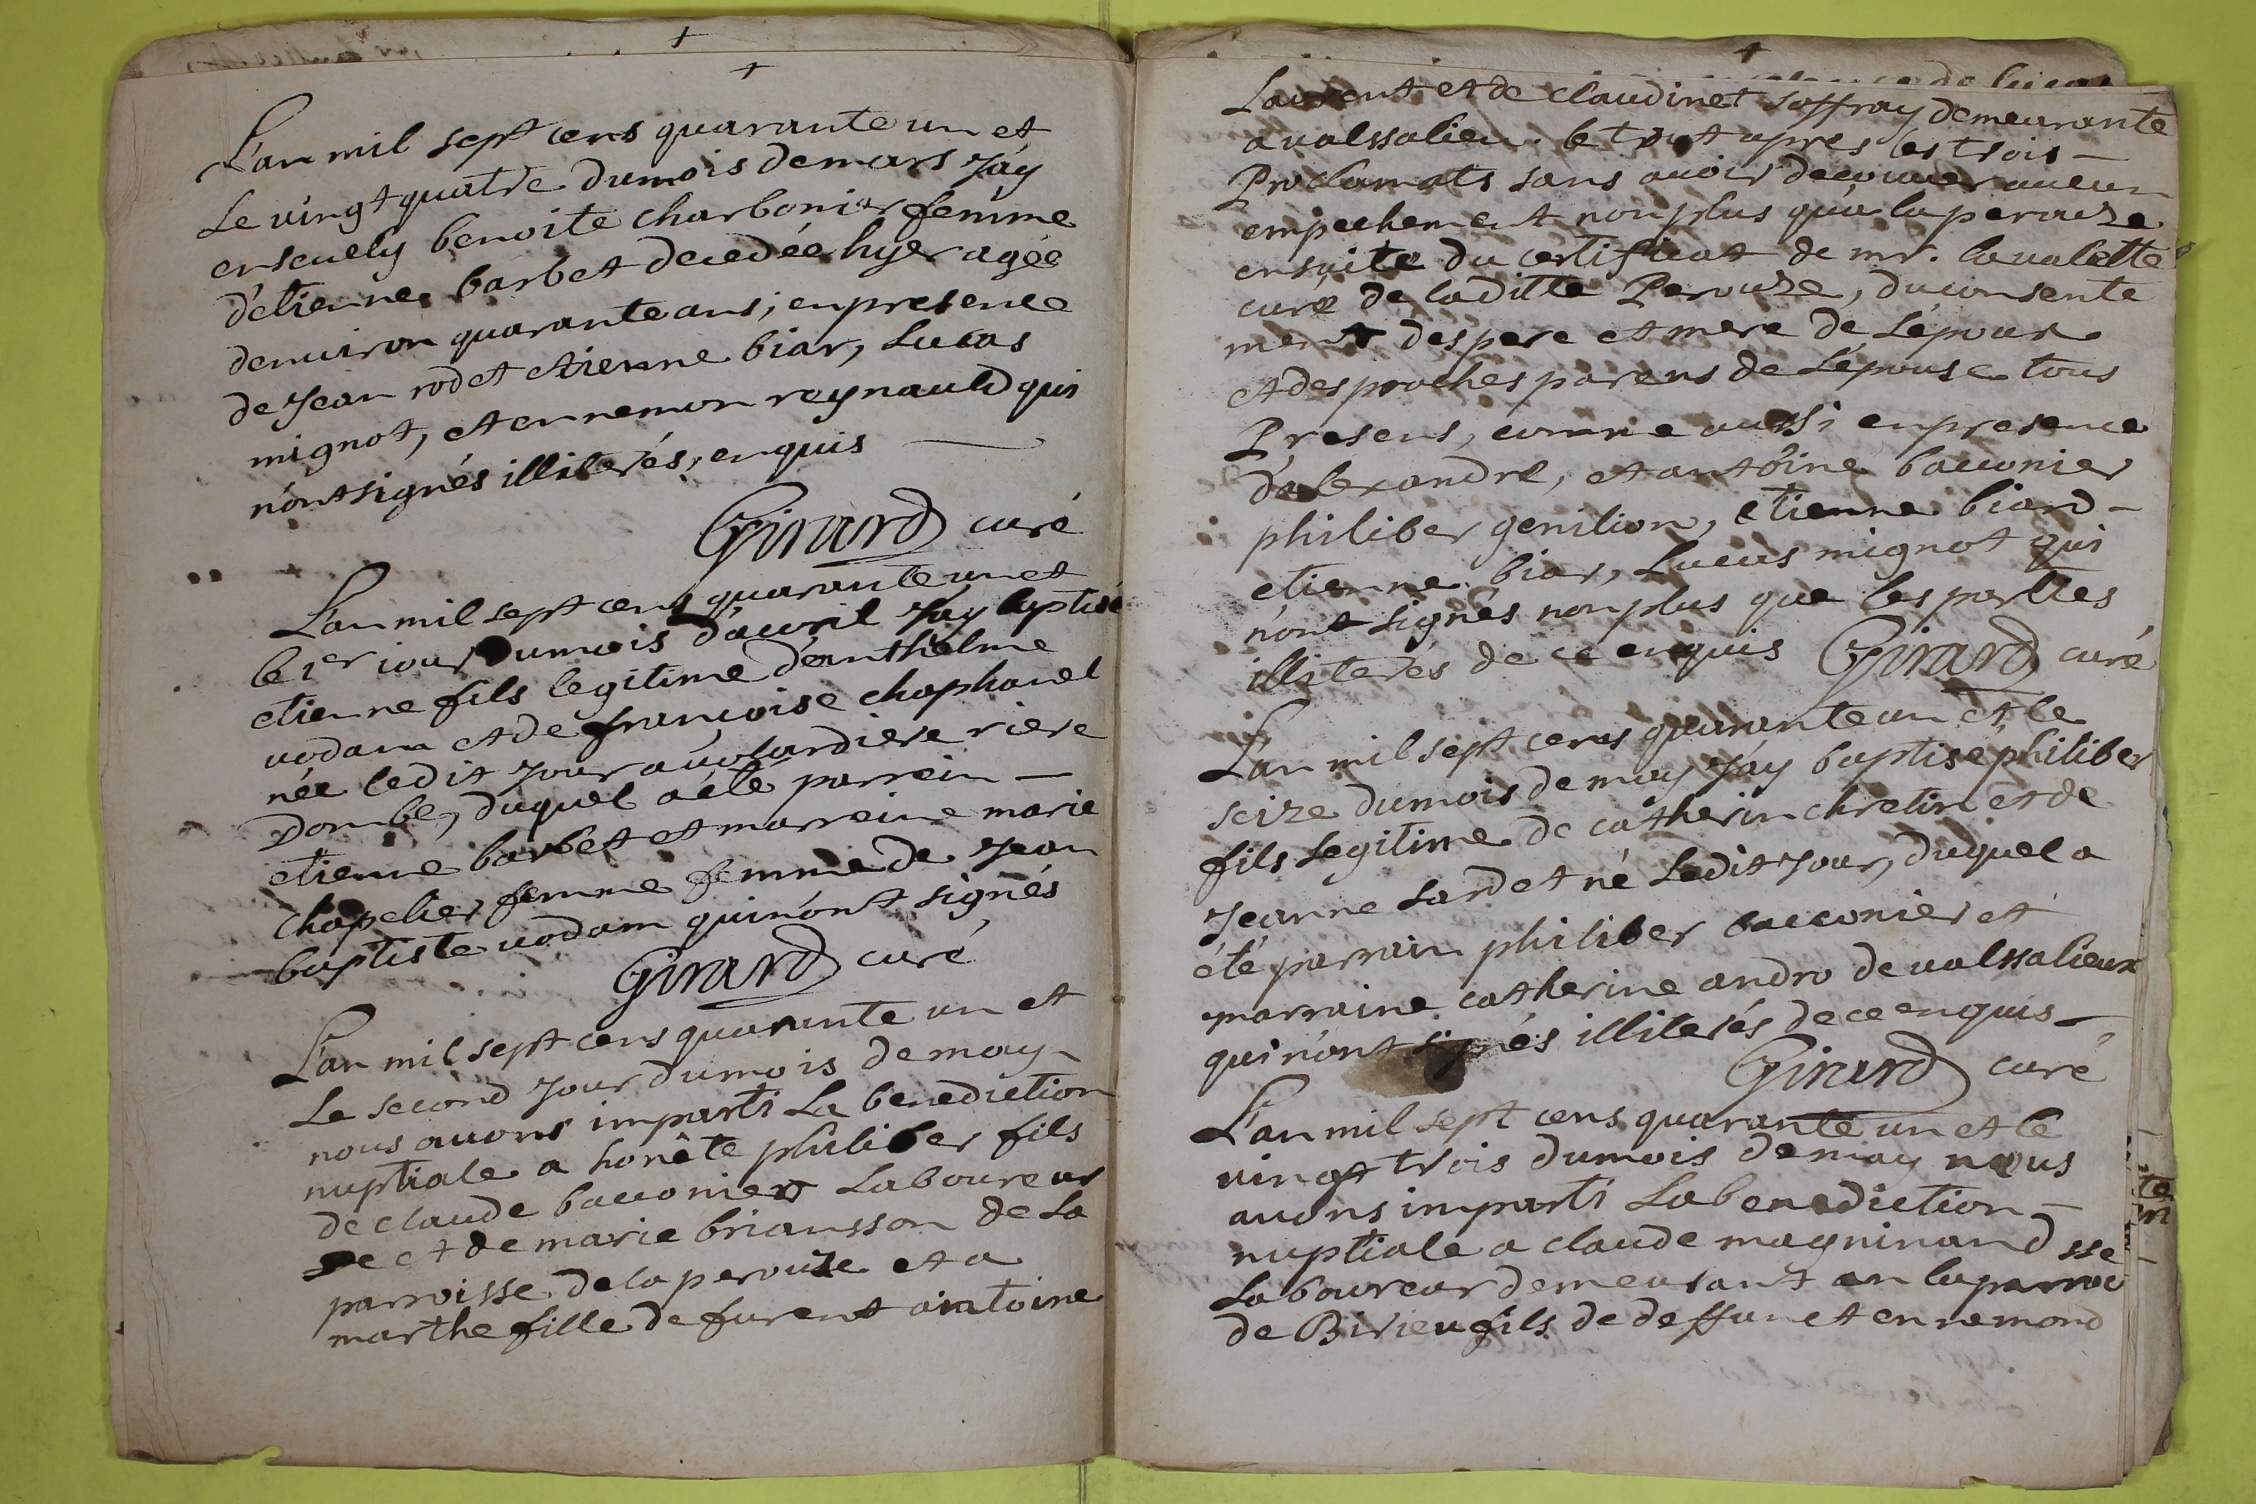 L'an mil sept cens quarante un et
Le vingt quatre dumois demars J'ay
ensevely benoite charbonier femme
d'etienne barbet decedée hyer agée
denviron quarante ans, en presence
de Jean rodet etienne biar, Lucas
mignot, et ennemon reynauld qui
n'ont signés illiterés, enquis
Girard curé
L'an mil sept cens quarante un et
le 1er iour dumois d'avril J'ay baptisé
etienne fils legitime d'anthelme
vodam et de françoise chaphanel
née ledit Jour a volardiere riere
Dombe, duquel a été parrein
etienne barbet et marreine marie
chapelier femme femme de Jean
baptiste vodam qui n'ont signés
Girard curé
L'an mil sept cens quarante un et
Le second Jour dumois de may
nous avons imparti La benediction
nuptiale a honête philiber fils
de claude bacconier Laboureur
et de marie briansson de La
parroisse de la perouze et a
marthe fille de furent antoine
Laurent et de claudine soffray demeurante
a valssalieu. le tout apres les trois
Proclamats sans avoir decouvert aucun
empechement non plus qu'a la perouze
ensuite du certificat de mr. lavalette
curé de laditte Perouze, du consente
ment des pere et mere de L'epoux
et des proches parens de L'epouse tous
Presens, comme aussi en presence
d'alexandre, et antoine bacconier
philiber genilion, etienne biard
etienne biar, Lucas mignot qui
n'ont signés non plus que les parties
illiterés de ce enquis Girard curé
L'an mil sept cens quarante un et le
seize dumois de may J'ay baptisé philiber
fils legitime de catherin chretin et de
Jeanne sardet né Ledit Jour, duquel a
été parrain philiber bacconier et
marraine catherine andro de valssalieux
qui n'ont signés illiterés de ce enquis
Girard curé
L'an mil sept cens quarante un et le
vingt trois dumois de may nous
avons imparti La benediction
nuptiale a claude magninand
Laboureur demeurant en la parroisse
de Birieu fils de deffunct ennemond